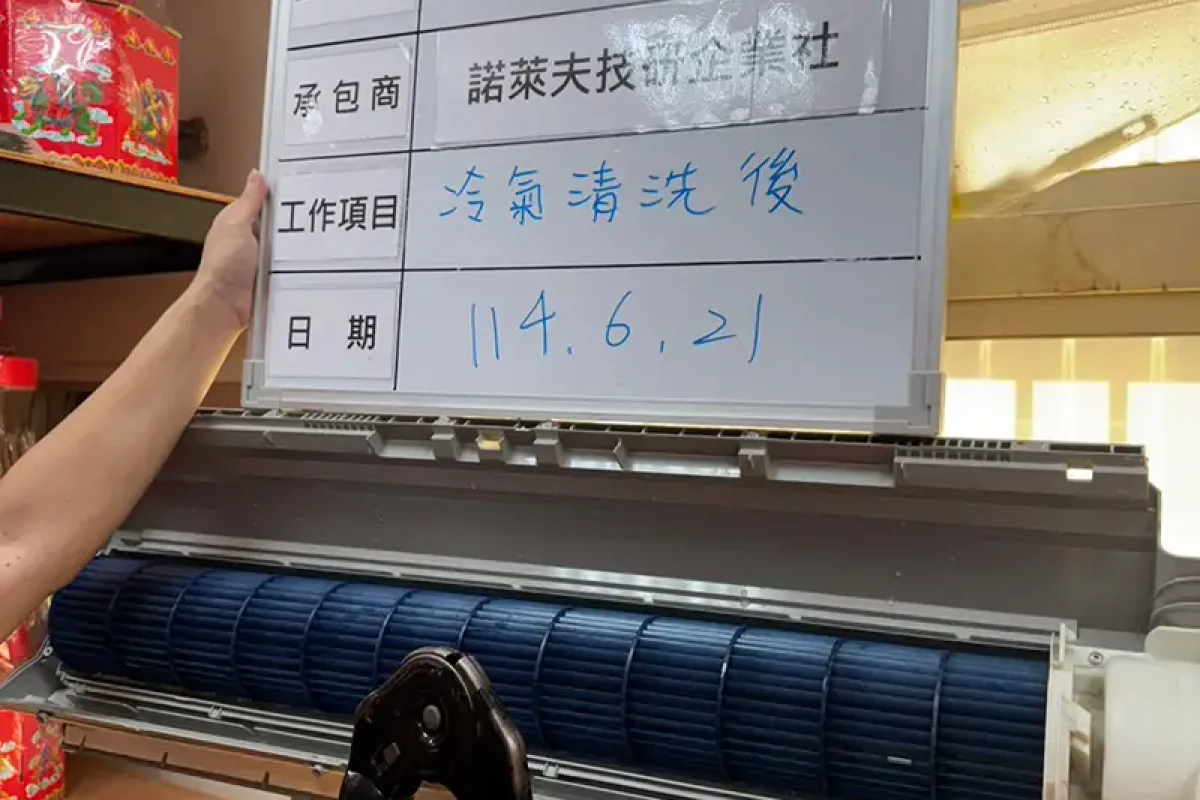 承包商 諾萊夫技研企業社
工作項目 冷氣清洗後
日期 114.6.21